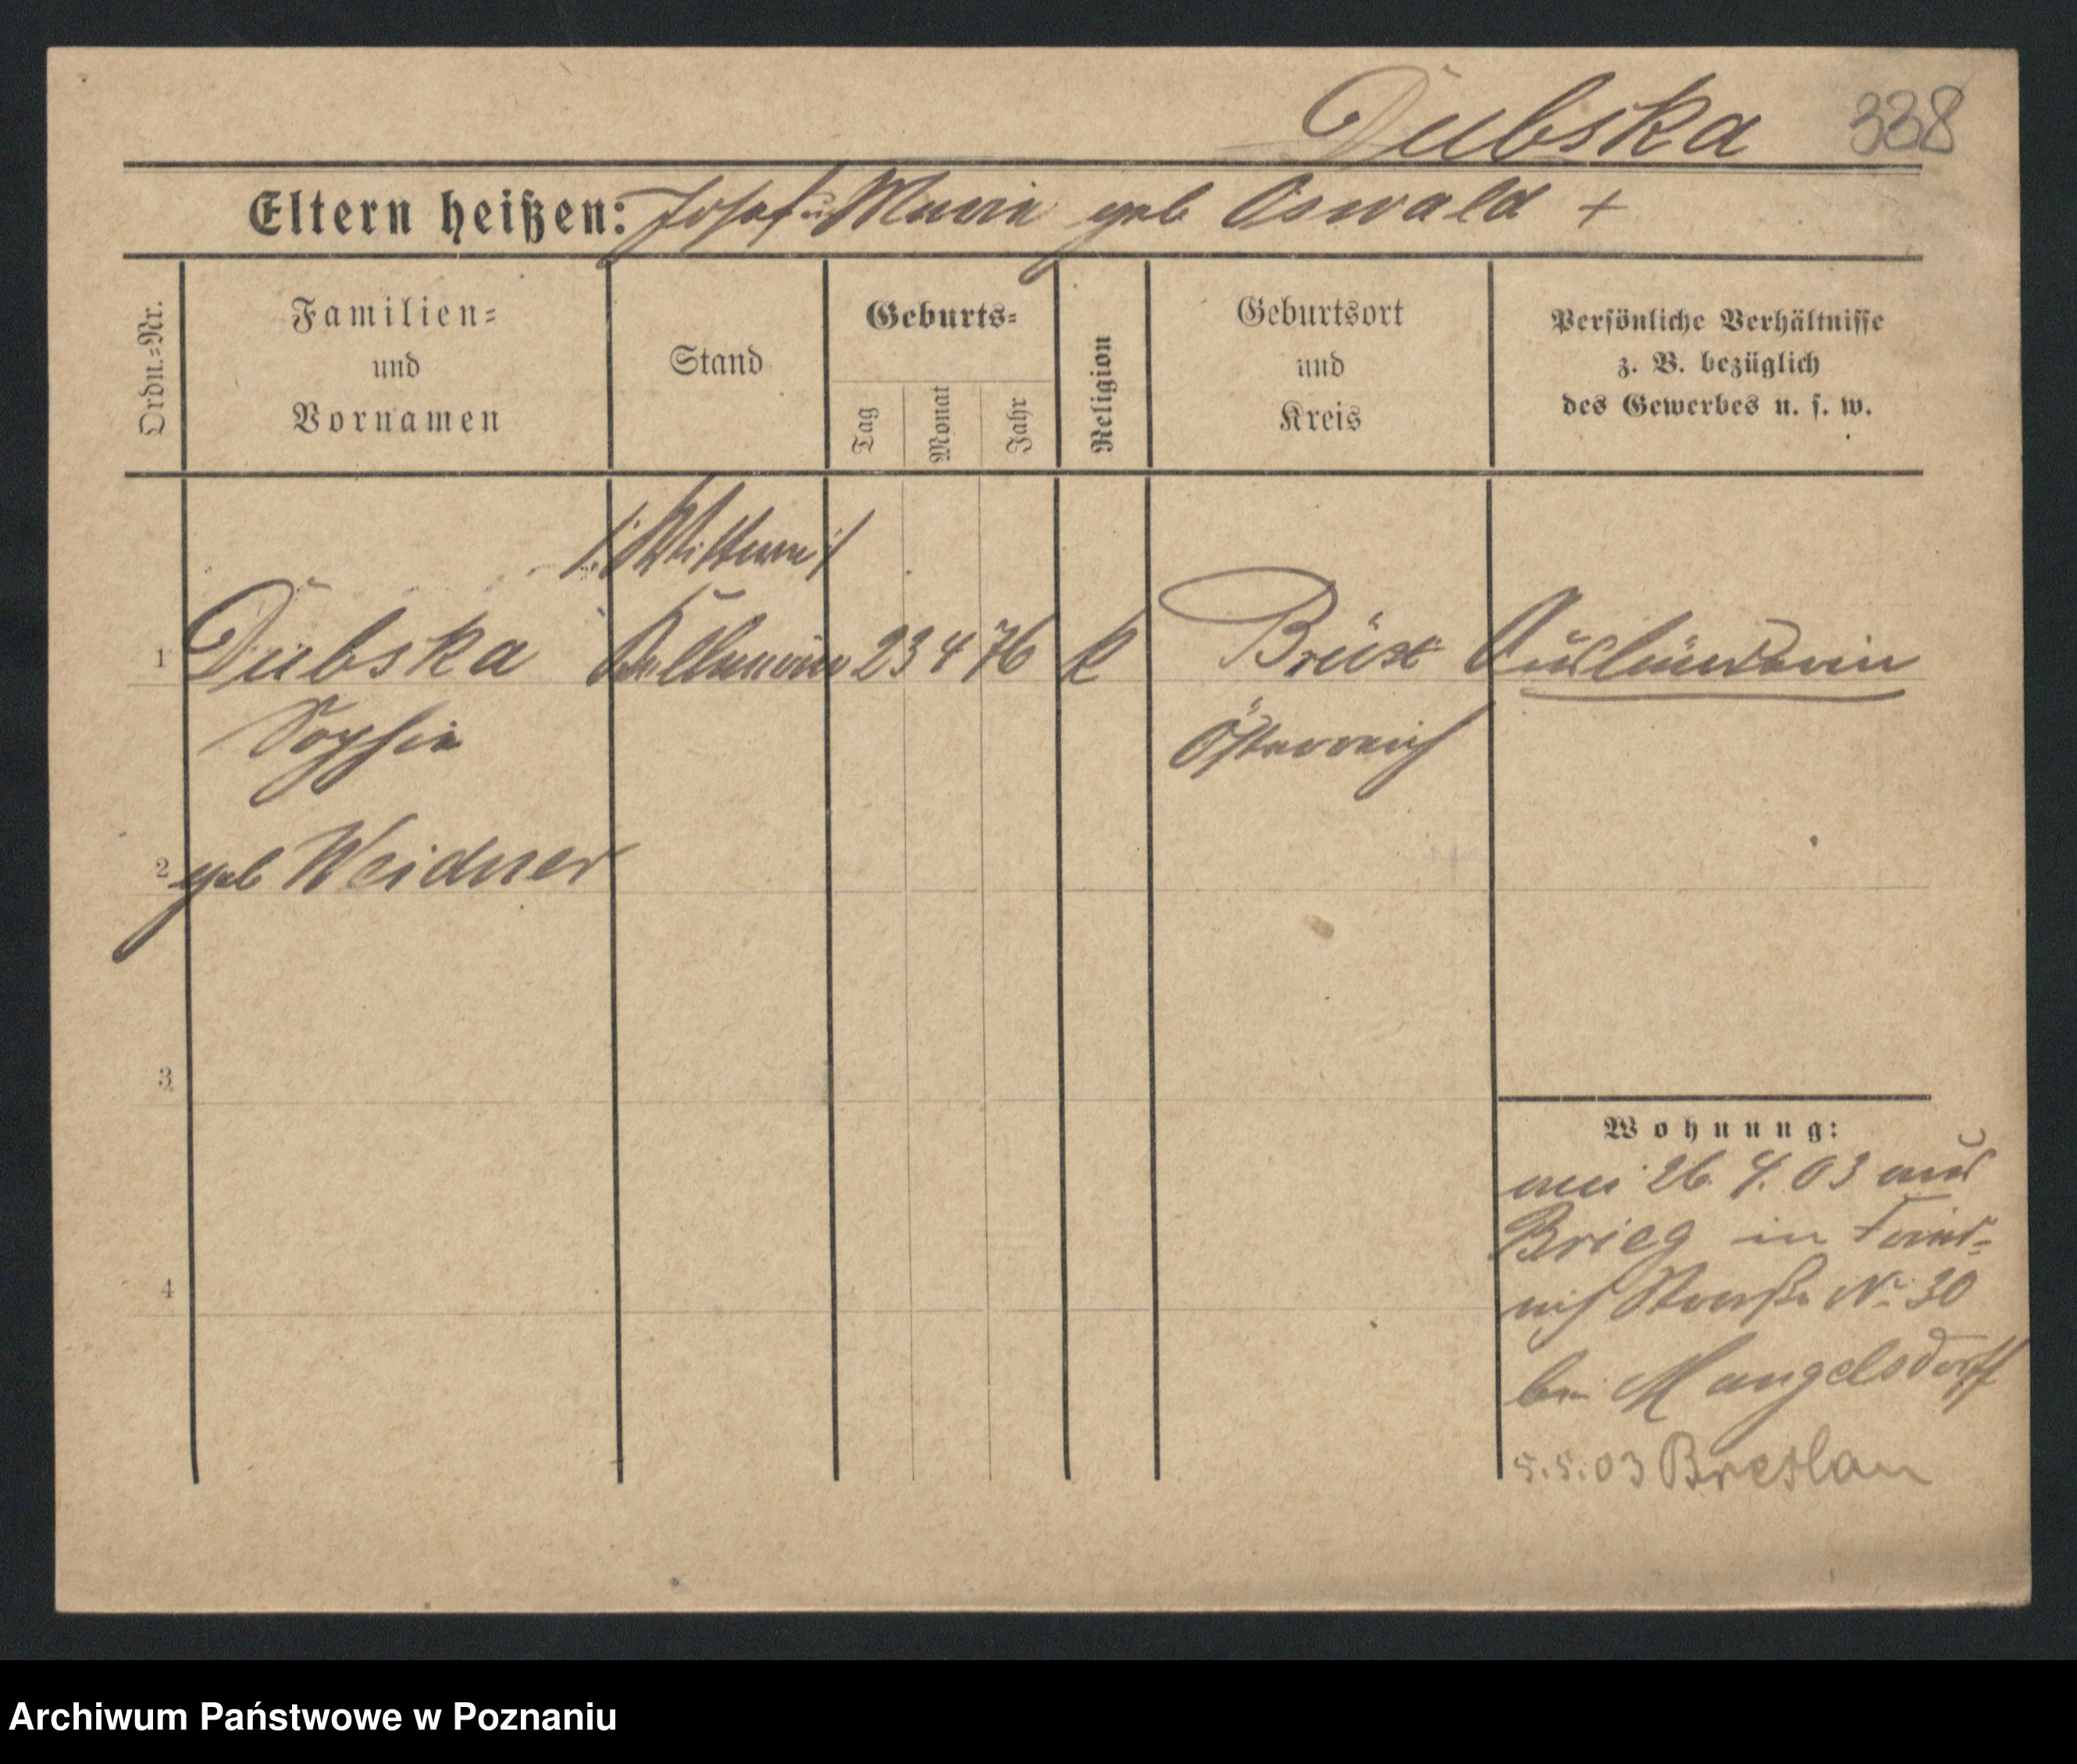 Dubska 338
Eltern heißen: Josef u Maria geb Oswald +
Ordn.=Nr.
Familien=
und
Vornamen
Stand
Geburts=
Tag
Monat
Jahr
Religion
Geburtsort
und
Kreis
Persönliche Verhältnisse
z. B. bezüglich
des Gewerbes u. s. w.
/: Wittwe :/
1 Dubska 23 4 76 k Brüx Ausländerin
Sophie Österreich
2 geb Weidner
3
4
Wohnung:
am 26. 4. 03 aus
Brieg in
Straße No 30
bei Mangelsdorff
5.5.03 Breslau
Archiwum Państwowe w Poznaniu